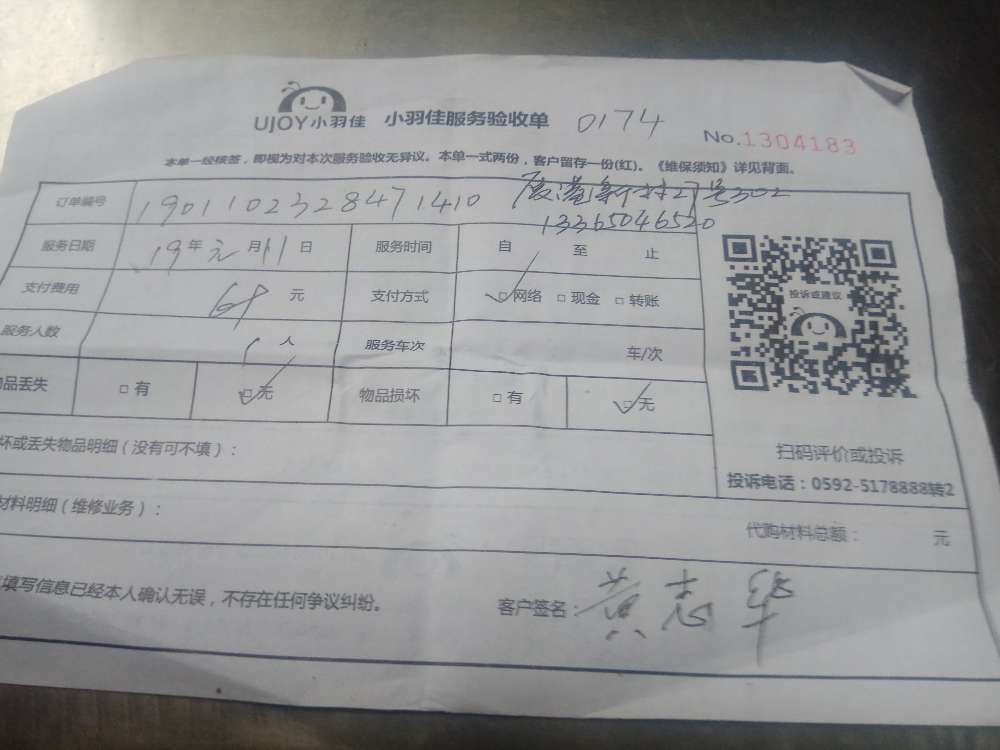 UJOY小羽佳 小羽佳服务验收单 0174
No.1304183
本单一经核签，即视为对本次服务验收无异议。本单一式两份，客户留存一份(红)。《维保须知》详见背面。
订单编号 1901102328471410 新村27号302
13365046520
服务日期 19年元月11日 服务时间 自 至 止
支付费用 68元 支付方式 ☑网络 □现金 □转账
服务人数 1人 服务车次 车/次
品丢失 □有 ☑无 物品损坏 □有 ☑无
投诉或建议
扫码评价或投诉
投诉电话：0592-5178888转2
坏或丢失物品明细（没有可不填）：
材料明细（维修业务）：
代购材料总额： 元
填写信息已经本人确认无误，不存在任何争议纠纷。 客户签名：黄志华